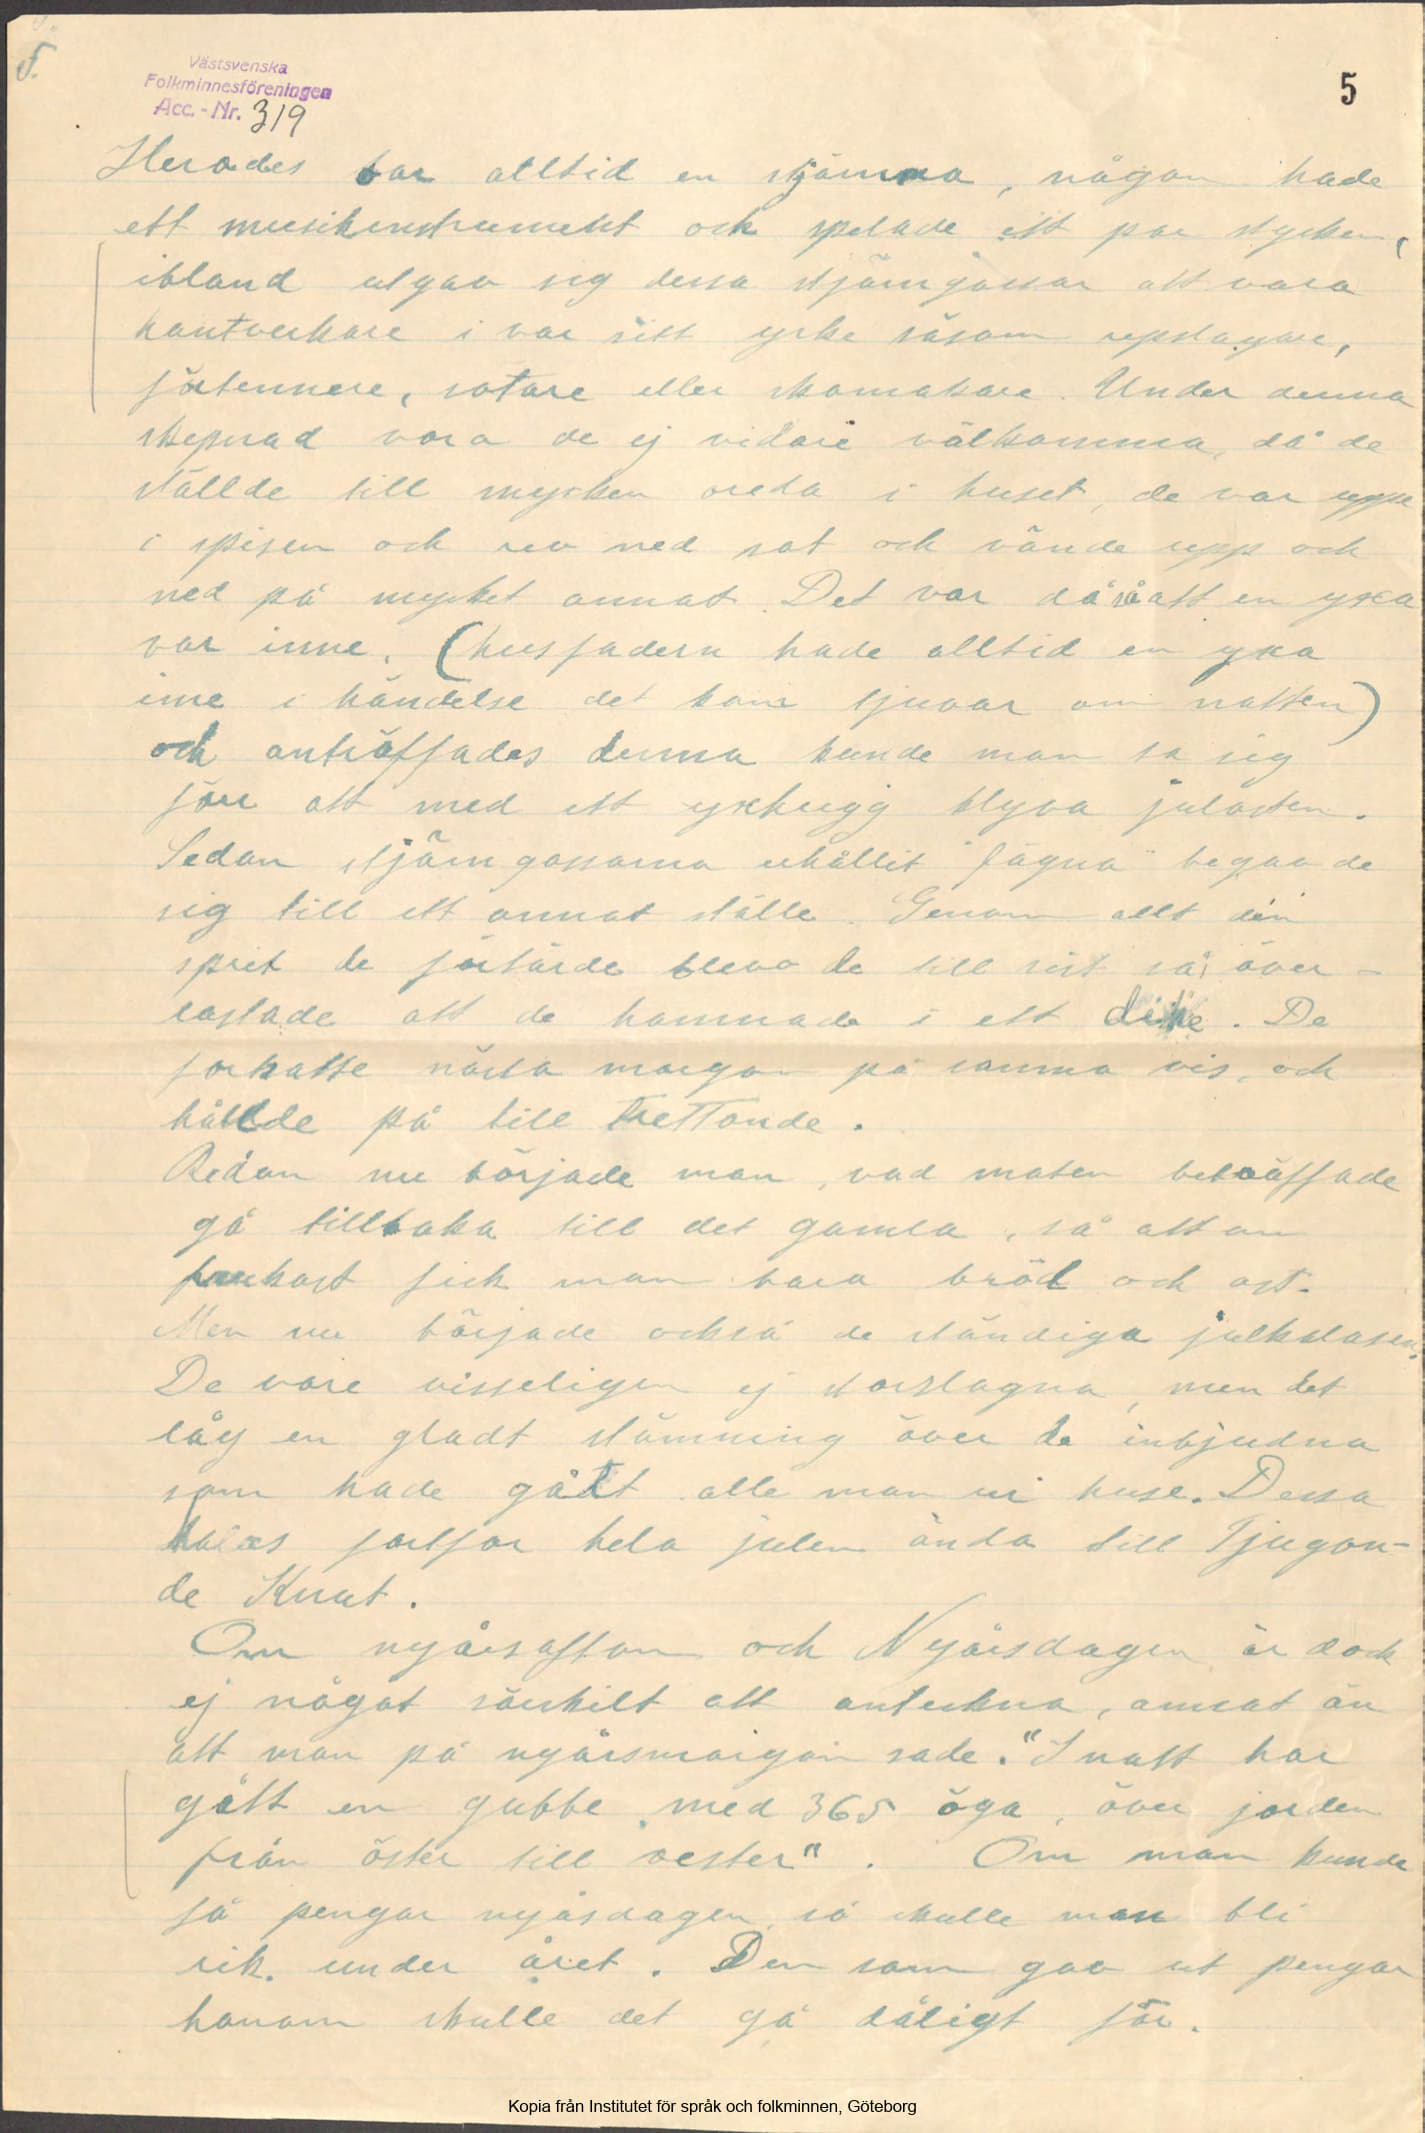 5.
Västsvenska
Folkminnesföreningen
Acc. - Nr. 319
5
Herodes bar alltid en stjärna, någon hade
ett musikinstrument och spelade ett par stycken,
ibland utgav sig dessa stjärngossar att vara
hantverkare i var sitt yrke såsom repslagare,
förtennere, sotare eller skomakare. Under denna
skepnad vora de ej vidare välkomna, då de
ställde till mycken oreda i huset, de var uppe
i spisen och rev ned sot och vände upp och
ned på mycket annat. Det var då så att en yxa
var inne. (husfadern hade alltid en yxa
inne i händelse det kom tjuvar om natten)
och anträffades denna kunde man ta sig
för att med ett yxhugg klyva julosten.
Sedan stjärngossarna erhållit "fägna" begav de
sig till ett annat ställe. Genom allt den
sprit de förtärde blevo de till sist så över-
lastade att de hamnade i ett dike. De
forsatte nästa morgon på samma vis, och
hållde på till Trettonde.
Redan nu började man, vad maten beträffade
gå tillbaka till det gamla, så att om
frukost fick man bara bröd och ost.
Men nu började också de ständiga julkalasen.
De vore visseligen ej storslagna, men det
låg en gladt stämning över de inbjudna
som hade gått alle man ur huse. Dessa
kalas fortfor hela julen ända till Tjugon-
de Knut.
Om nyårsafton och Nyårsdagen är dock
ej något särskilt att anteckna, annat än
att man på nyårsmorgon sade. "I natt har
gått en gubbe med 365 öga, över jorden
från öster till vester". Om man kunde
få pengar nyåsdagen, så skulle man bli
rik. under året. Den som gav ut pengar
honom skulle det gå dåligt för.
Kopia från Institutet för språk och folkminnen, Göteborg